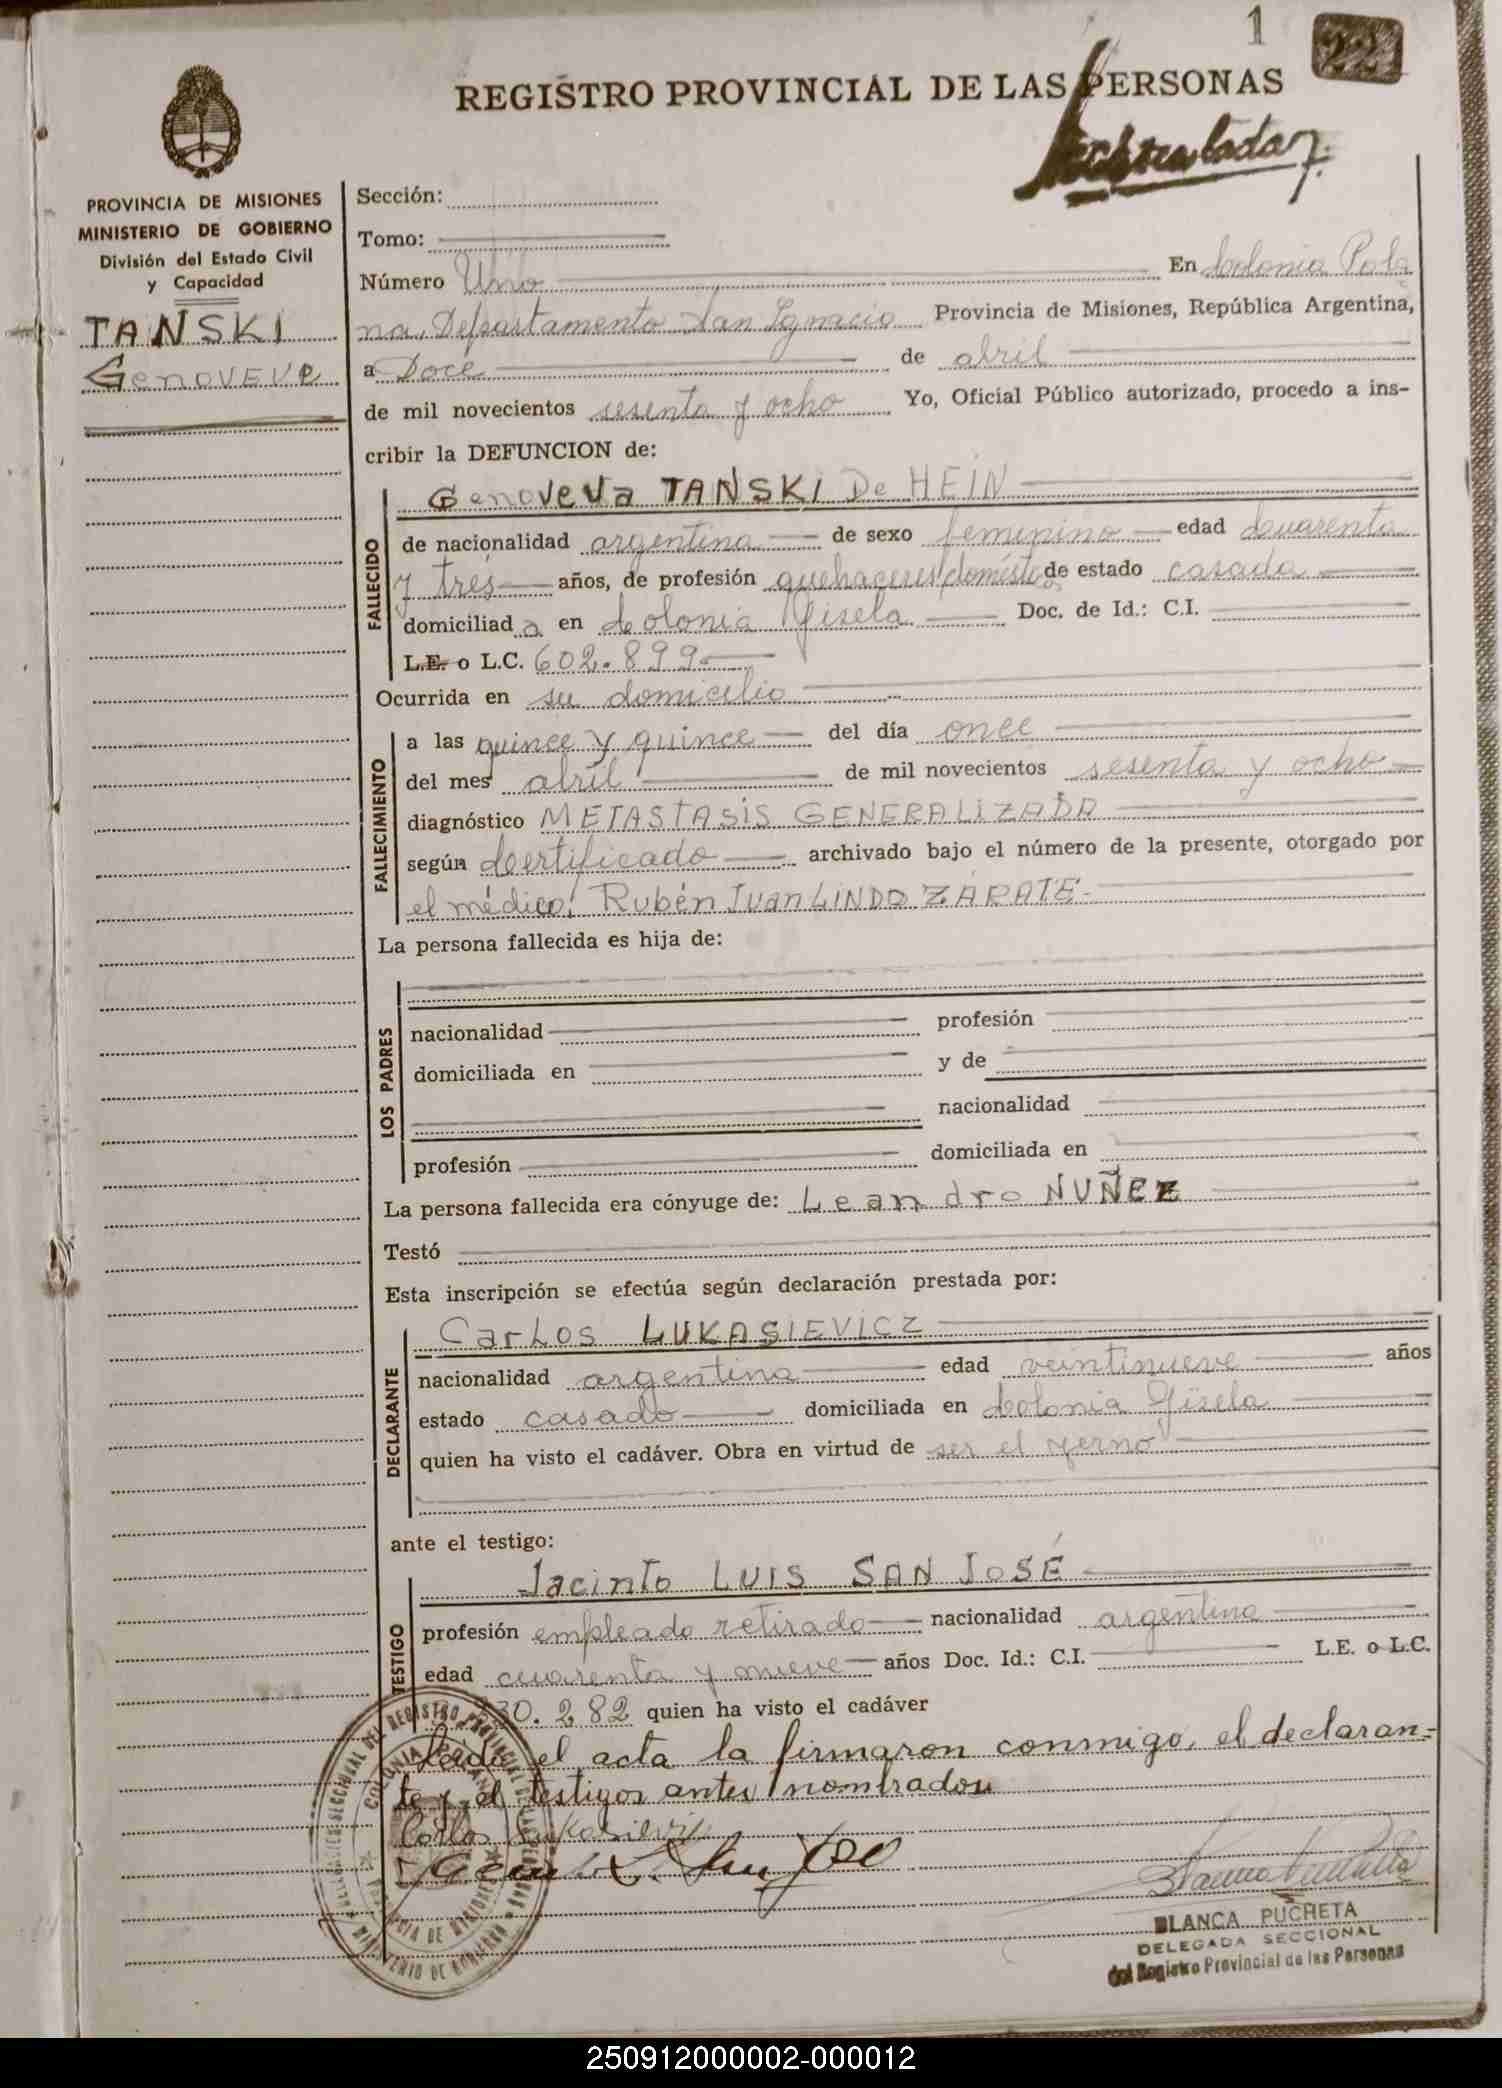 1
22
REGISTRO PROVINCIAL DE LAS PERSONAS
PROVINCIA DE MISIONES
MINISTERIO DE GOBIERNO
División del Estado Civil
y Capacidad
TANSKI
Genoveve
Sección:
Tomo:
Número Uno En Colonia Pola
na, Departamento San Ignacio Provincia de Misiones, República Argentina,
a Doce de abril
de mil novecientos sesenta y ocho Yo, Oficial Público autorizado, procedo a ins-
cribir la DEFUNCION de:
FALLECIDO
Genoveva TANSKI De HEIN
de nacionalidad argentina de sexo femenino edad Cuarenta
y tres años, de profesión quehaceres domésticos de estado casada
domiciliada en Colonia Gisela Doc. de Id.: C.I.
L.E. o L.C. 602.899
Ocurrida en su domicilio
FALLECIMIENTO
a las quince y quince del día once
del mes abril de mil novecientos sesenta y ocho
diagnóstico METASTASIS GENERALIZADA
según Certificado archivado bajo el número de la presente, otorgado por
el médico: Rubén Juan LINDO ZÁRATE
La persona fallecida es hija de:
LOS PADRES
nacionalidad profesión
domiciliada en y de
nacionalidad
profesión domiciliada en
La persona fallecida era cónyuge de: Leandro NUÑEZ
Testó
Esta inscripción se efectúa según declaración prestada por:
DECLARANTE
Carlos LUKASIEVICZ
nacionalidad argentina edad veintinueve años
estado casado domiciliada en Colonia Gisela
quien ha visto el cadáver. Obra en virtud de ser el yerno
ante el testigo:
TESTIGO
Jacinto LUIS SAN JOSÉ
profesión empleado retirado nacionalidad argentina
edad cuarenta y nueve años Doc. Id.: C.I. L.E. o L.C.
30.282 quien ha visto el cadáver
Leída el acta la firmaron conmigo, el declaran-
te y el testigos antes nombrados
Carlos
BLANCA PUCHETA
DELEGADA SECCIONAL
del Registro Provincial de las Personas
250912000002-000012